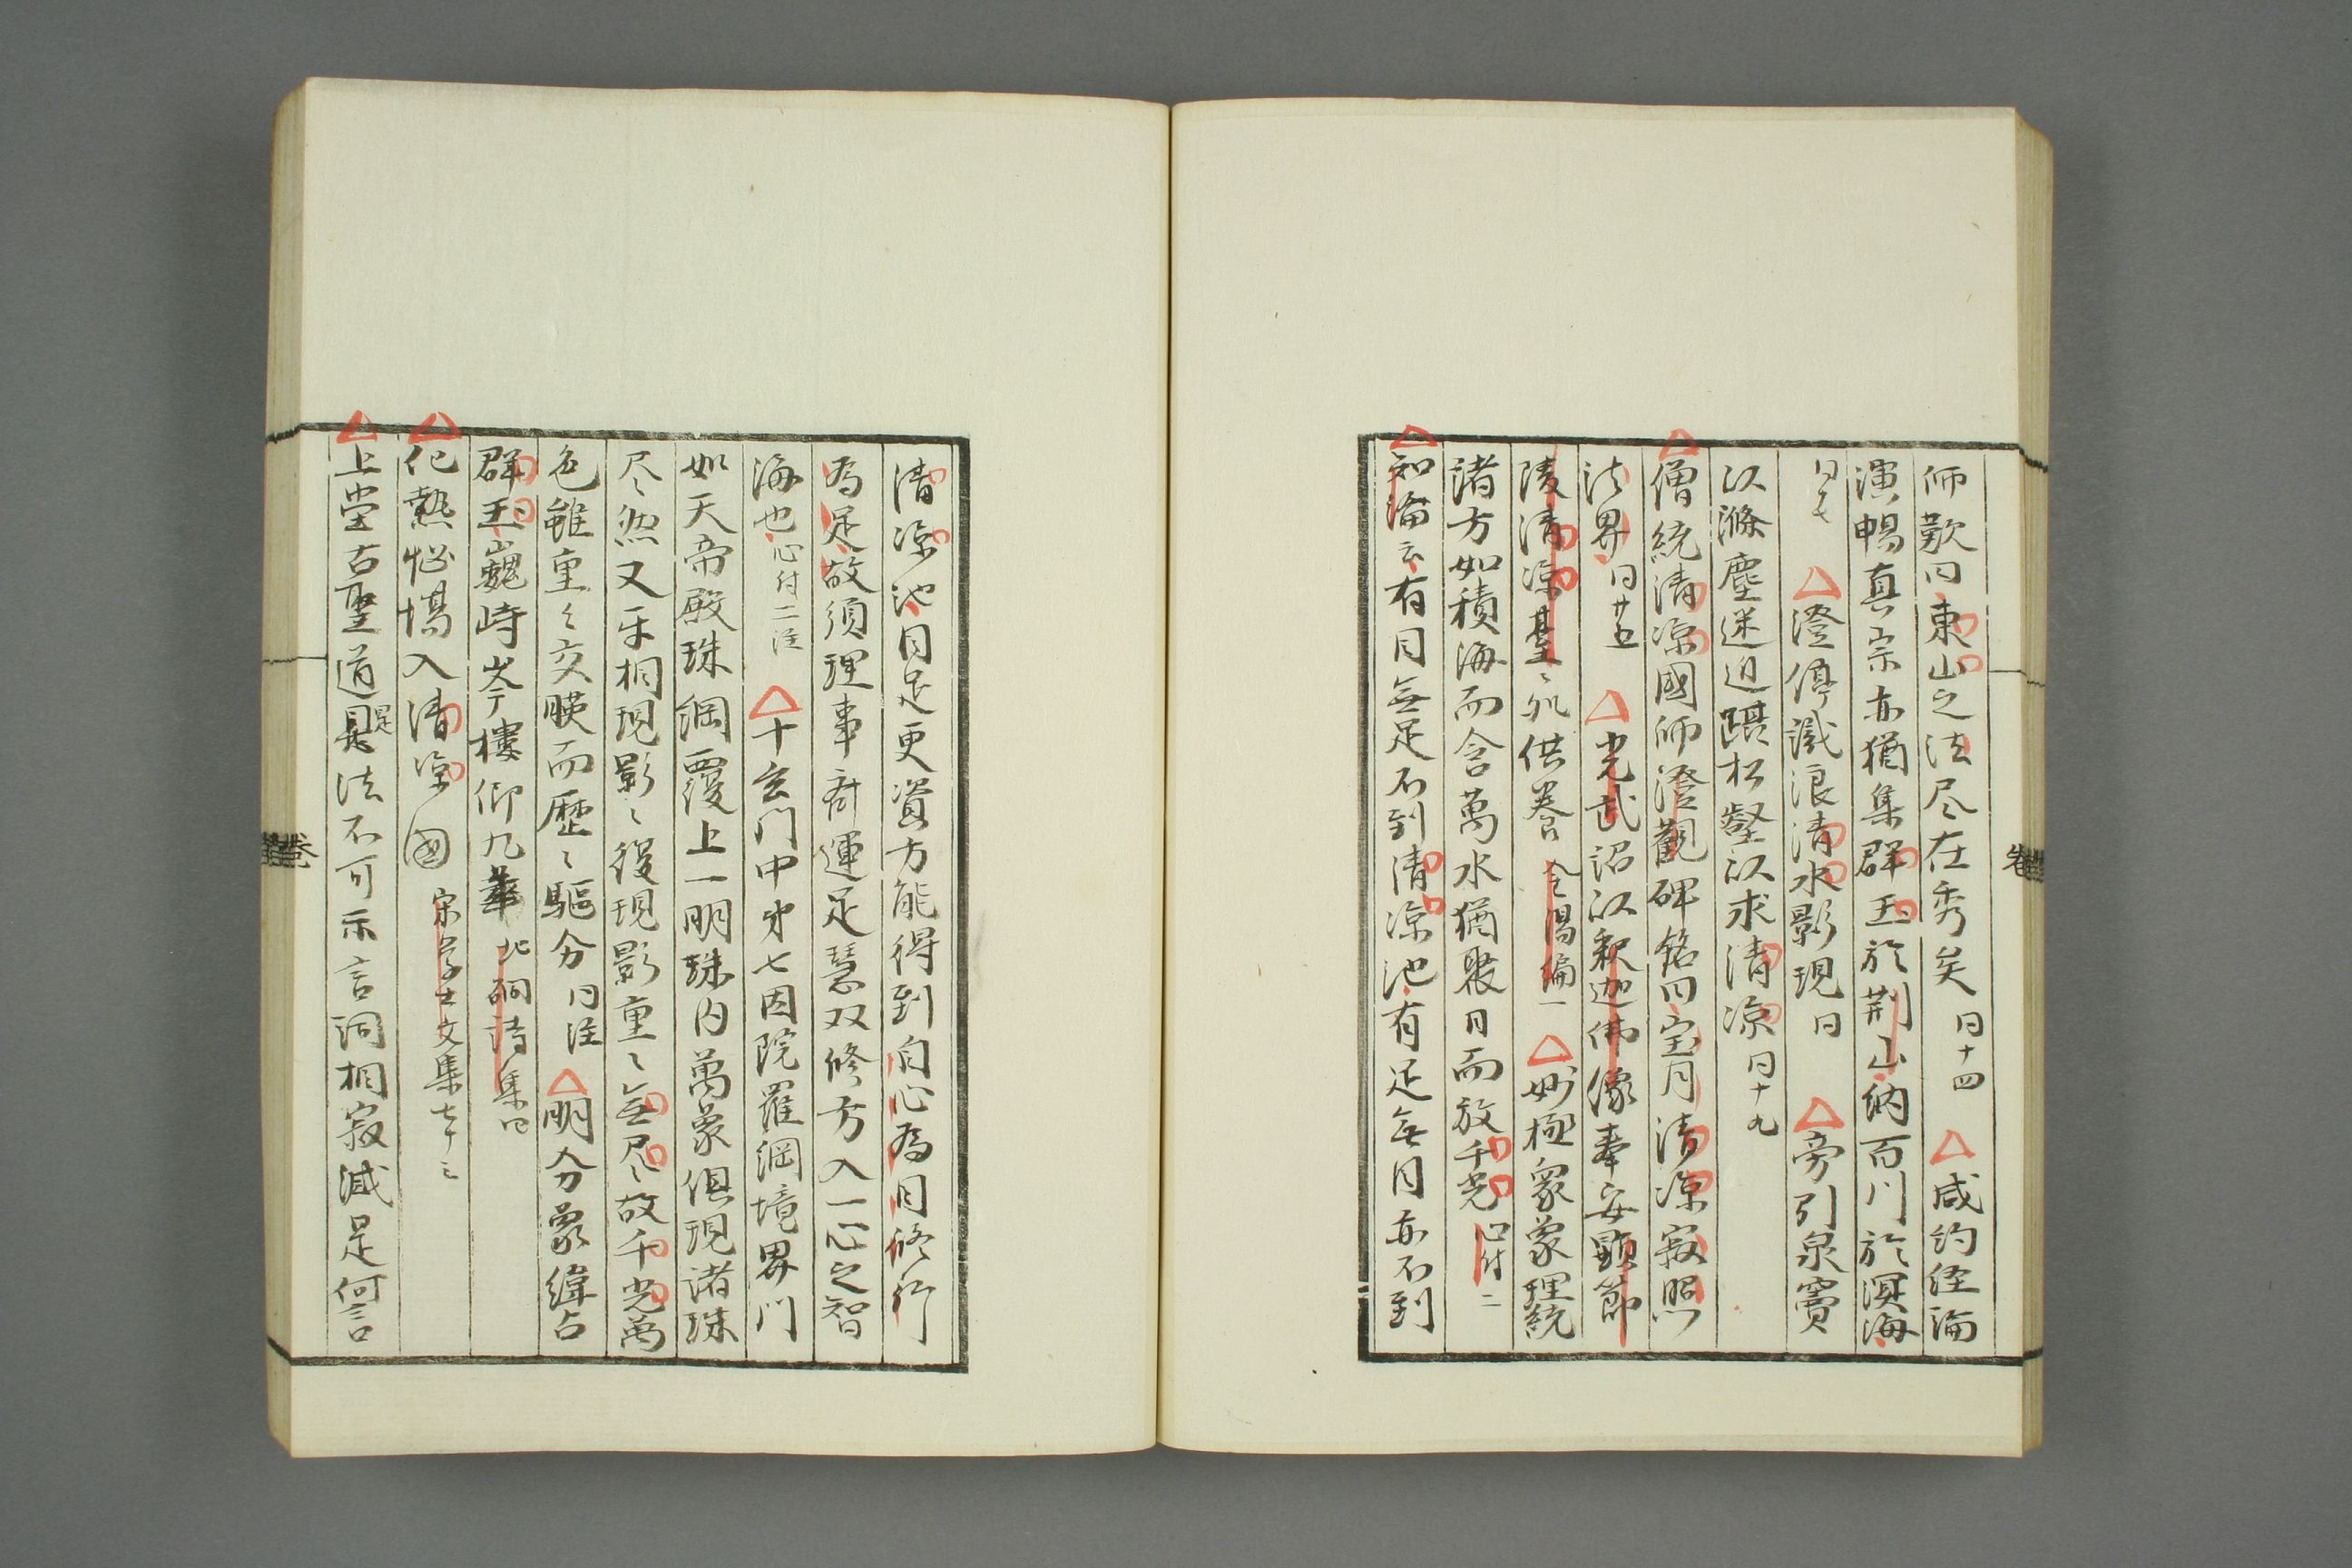 師歎曰東山之法尽在秀矣 同十四 △咸約経論
演暢真宗亦猶集群玉於荆山納百川於溟海
同七 △澄停識浪清水影現 同 △旁引泉竇
以滌塵迷迫躡松壑以求清凉 同十九
△僧統清凉國師澄觀碑銘曰宝月清凉寂照
法界 同廿五 △光武詔以釈迦佛像奉安顕節
陵清凉臺 供養 金湯編一 △妙極衆象理統
諸方如積海而含萬水猶聚日而放千光 心付二
△知論云有目無足不到清凉池有足無目亦不到
清凉池目足更資方能得到自心為目修行
為足故須理事斉運足慧双修方入一心之智
海也 心付二注 △十玄門中第七因陀羅網境界門
如天帝殿珠網覆上一明珠内萬象俱現諸珠
尽然又互相現影〻復現影重〻無尽故千光萬
色雖重〻交暎而歴〻駆分 同注 △明分象緯占
群玉巍峙岑樓仰九華 北磵詩集四
△化熱惱場入清凉國 宋学士文集
△上堂古聖道是法不可示言詞相寂滅是何言
是
卷
卷